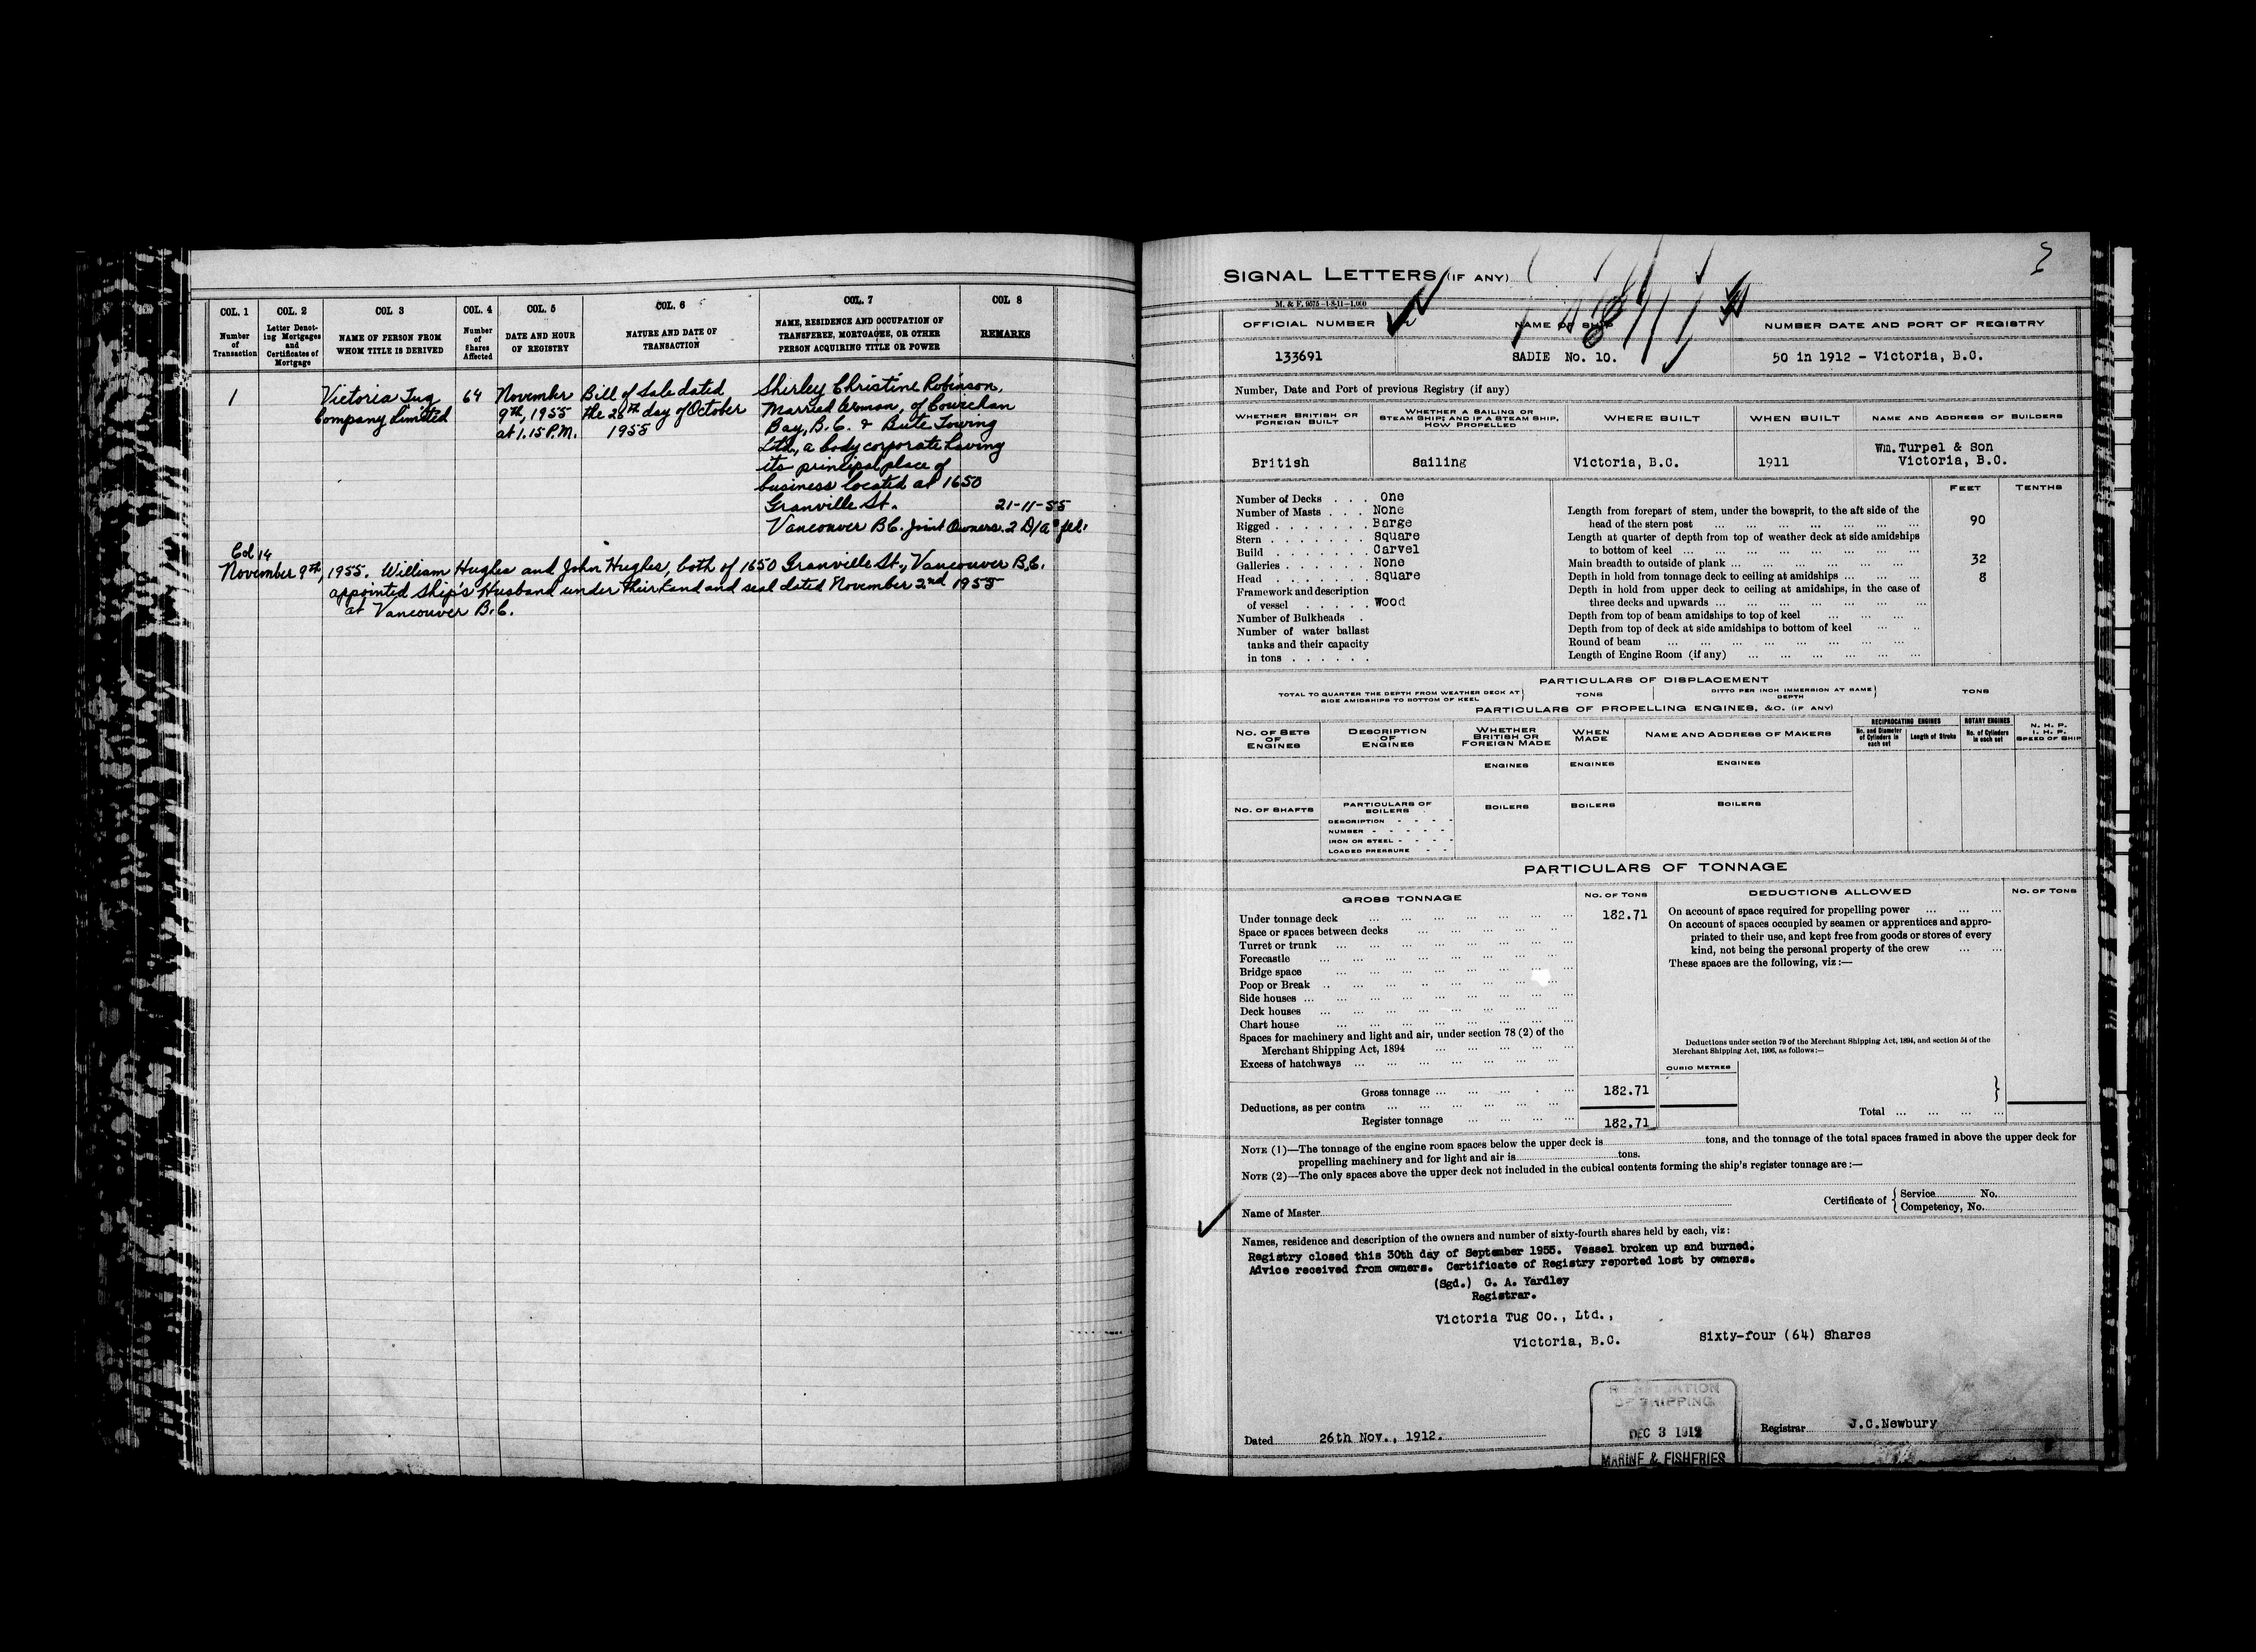 COL. 1 COL. 2 COL 3 COL. 4 COL. 5 COL. 6 COL. 7 COL 8
Number of Transaction
Letter Denoting Mortgages and Certificates of Mortgage
NAME OF PERSON FROM WHOM TITLE IS DERIVED
Number of Shares Affected
DATE AND HOUR OF REGISTRY
NATURE AND DATE OF TRANSACTION
NAME, RESIDENCE AND OCCUPATION OF TRANSFEREE, MORTGAGEE, OR OTHER PERSON ACQUIRING TITLE OR POWER
REMARKS
1
Victoria Tug
Company Limited
64
November
9th, 1955
at 1.15 P.M.
Bill of Sale dated
the 28th day of October
1955
Shirley Christine Robinson,
Married Woman, of Cowichan
Bay, B.C. & Bute Towing
Ltd., a body corporate having
its principal place of
business located at 1650
Granville St.
Vancouver B.C. Joint Owners.
21-11-55
2 D/a
Col 14
November 9th, 1955. William Hughes and John Hughes, both of 1650 Granville St., Vancouver B.C.
appointed Ship's Husband under their hand and seal dated November 2nd 1955
at Vancouver B.C.
SIGNAL LETTERS (IF ANY)
M. & F. 9575-1-8-11-1,000
OFFICIAL NUMBER NAME OF SHIP NUMBER DATE AND PORT OF REGISTRY
133691 SADIE No. 10. 50 in 1912 - Victoria, B.C.
Number, Date and Port of previous Registry (if any)
WHETHER BRITISH OR FOREIGN BUILT
WHETHER A SAILING OR STEAM SHIP; AND IF A STEAM SHIP, HOW PROPELLED
WHERE BUILT
WHEN BUILT
NAME AND ADDRESS OF BUILDERS
British Sailing Victoria, B.C. 1911
Wm. Turpel & Son
Victoria, B.C.
Number of Decks . . . One
Number of Masts . . . None
Rigged . . . . . . . Barge
Stern . . . . . . . Square
Build . . . . . . . Carvel
Galleries . . . . . . None
Head . . . . . . . Square
Framework and description
of vessel . . . . . Wood
Number of Bulkheads .
Number of water ballast
tanks and their capacity
in tons . . . . . .
FEET TENTHS
Length from forepart of stem, under the bowsprit, to the aft side of the
head of the stern post 90
Length at quarter of depth from top of weather deck at side amidships
to bottom of keel
Main breadth to outside of plank 32
Depth in hold from tonnage deck to ceiling at amidships 8
Depth in hold from upper deck to ceiling at amidships, in the case of
three decks and upwards
Depth from top of beam amidships to top of keel
Depth from top of deck at side amidships to bottom of keel
Round of beam
Length of Engine Room (if any)
PARTICULARS OF DISPLACEMENT
TOTAL TO QUARTER THE DEPTH FROM WEATHER DECK AT SIDE AMIDSHIPS TO BOTTOM OF KEEL } TONS
DITTO PER INCH IMMERSION AT SAME DEPTH } TONS
PARTICULARS OF PROPELLING ENGINES, &C. (IF ANY)
NO. OF SETS OF ENGINES
DESCRIPTION OF ENGINES
WHETHER BRITISH OR FOREIGN MADE
WHEN MADE
NAME AND ADDRESS OF MAKERS
RECIPROCATING ENGINES
No. and Diameter of Cylinders in each set
Length of Stroke
ROTARY ENGINES
No. of Cylinders in each set
N. H. P.
I. H. P.
SPEED OF SHIP
ENGINES ENGINES ENGINES
NO. OF SHAFTS
PARTICULARS OF BOILERS
BOILERS BOILERS BOILERS
DESCRIPTION - - - -
NUMBER - - - - -
IRON OR STEEL - - -
LOADED PRESSURE - -
PARTICULARS OF TONNAGE
GROSS TONNAGE NO. OF TONS
Under tonnage deck 182.71
Space or spaces between decks
Turret or trunk
Forecastle
Bridge space
Poop or Break
Side houses
Deck houses
Chart house
Spaces for machinery and light and air, under section 78 (2) of the
Merchant Shipping Act, 1894
Excess of hatchways
Gross tonnage 182.71
Deductions, as per contra
Register tonnage 182.71
DEDUCTIONS ALLOWED NO. OF TONS
On account of space required for propelling power
On account of spaces occupied by seamen or apprentices and appro-
priated to their use, and kept free from goods or stores of every
kind, not being the personal property of the crew
These spaces are the following, viz:—
Deductions under section 79 of the Merchant Shipping Act, 1894, and section 54 of the
Merchant Shipping Act, 1906, as follows:—
CUBIC METRES
Total
NOTE (1)—The tonnage of the engine room spaces below the upper deck is tons, and the tonnage of the total spaces framed in above the upper deck for
propelling machinery and for light and air is tons.
NOTE (2)—The only spaces above the upper deck not included in the cubical contents forming the ship's register tonnage are:—
Name of Master
Certificate of { Service No.
Competency, No.
Names, residence and description of the owners and number of sixty-fourth shares held by each, viz:
Registry closed this 30th day of September 1955. Vessel broken up and burned.
Advice received from owners. Certificate of Registry reported lost by owners.
(Sgd.) G. A. Yardley
Registrar.
Victoria Tug Co., Ltd.,
Victoria, B.C. Sixty-four (64) Shares
OF SHIPPING
DEC 3 1912
MARINE & FISHERIES
Dated 26th Nov., 1912.
Registrar J.C.Newbury